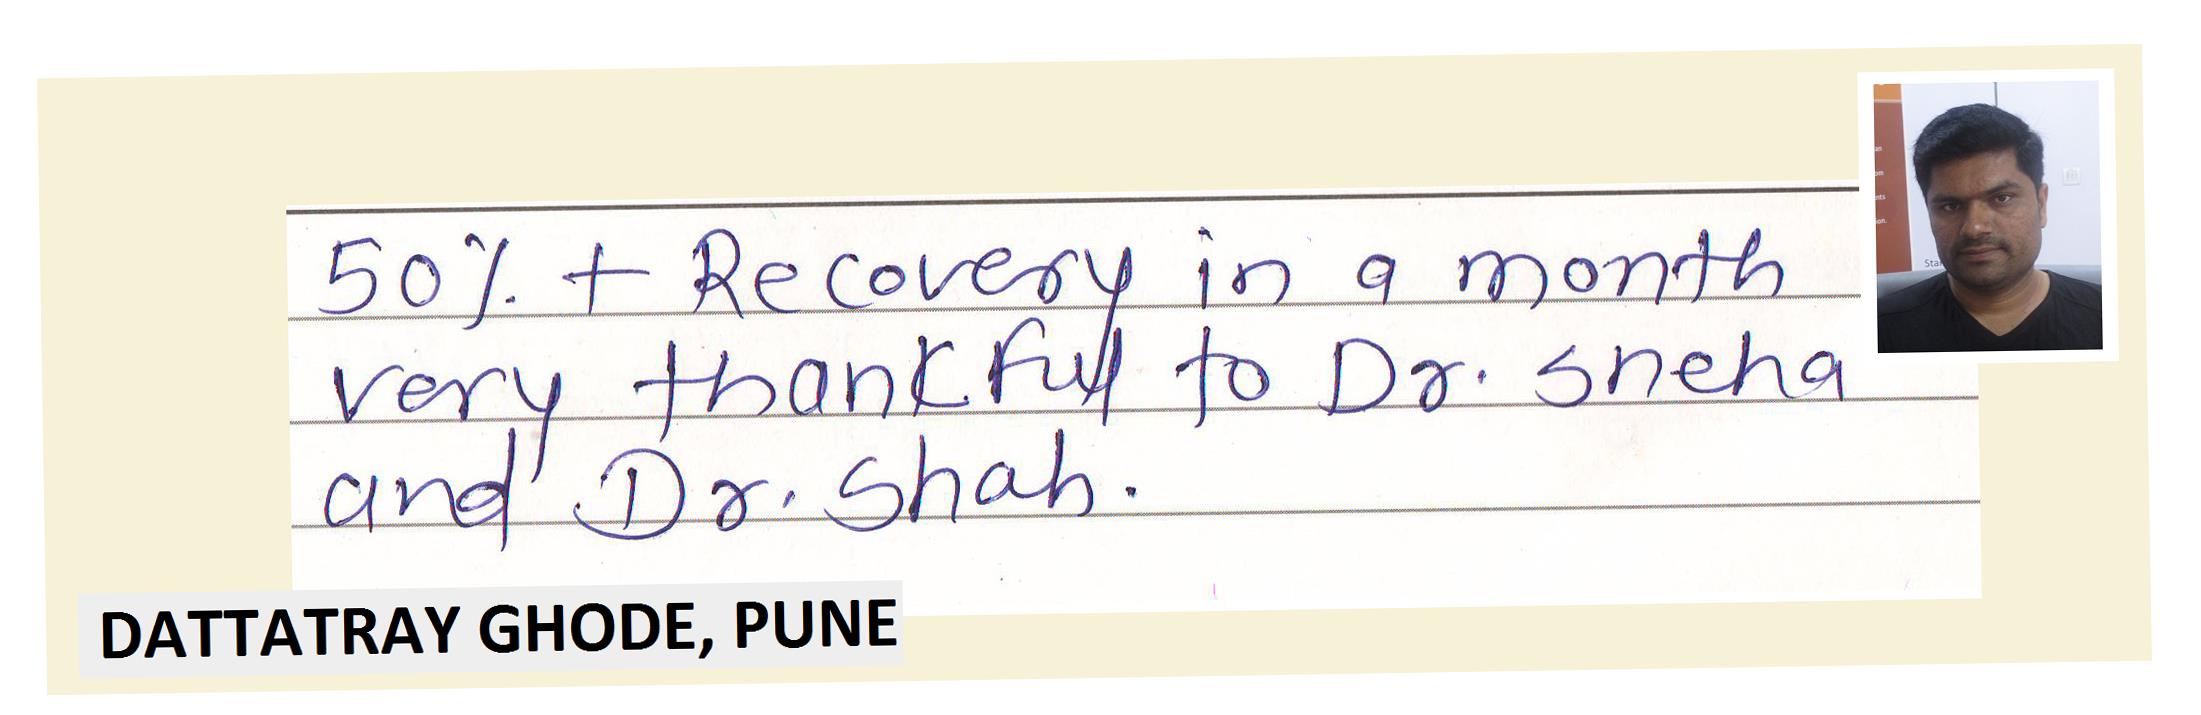 50% + Recovery in a month
very thankful to Dr. Sneha
and Dr. Shah.
DATTATRAY GHODE, PUNE